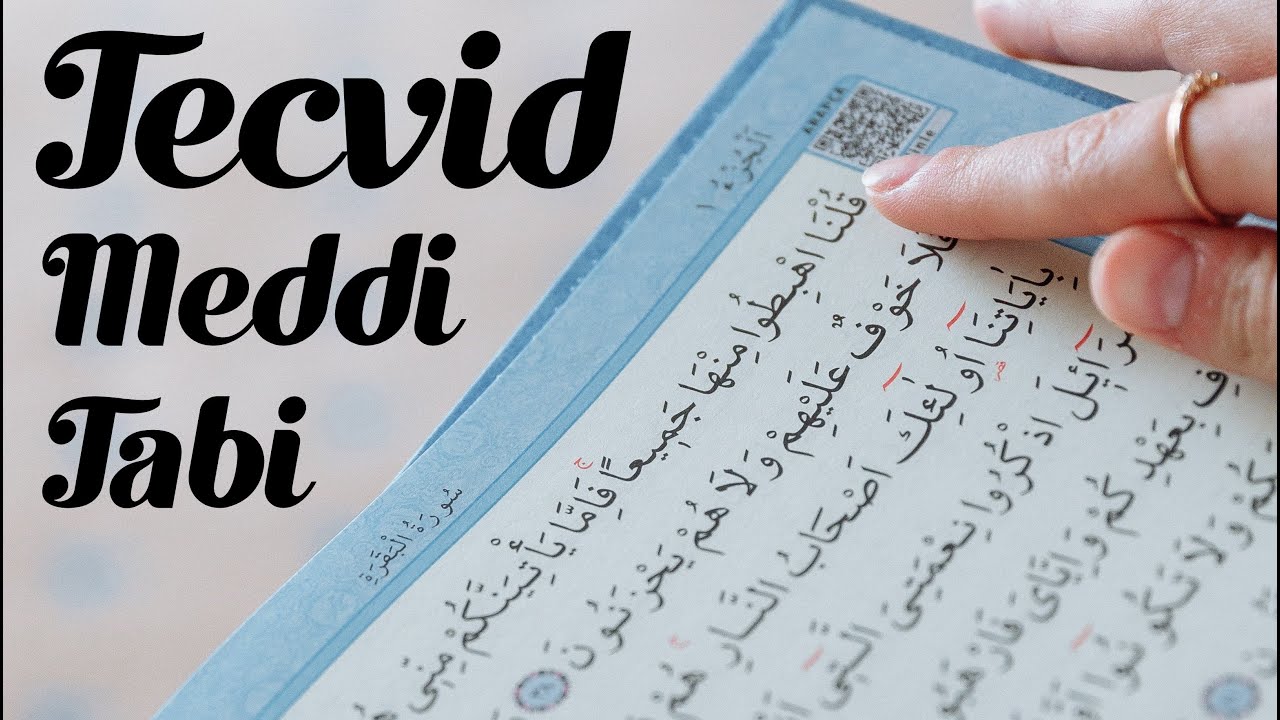 Tecvid
Meddi
Tabi
اَلْجُزْءُ ١
سُورَةُ الْبَقَرَةِ
قُلْنَا اهْبِطُوا مِنْهَا جَمِيعاًۚ فَاِمَّا يَأْتِيَنَّكُمْ مِنِّى
فَلَا خَوْفٌ عَلَيْهِمْ وَلَا هُمْ يَحْزَنُونَ
بِاٰيَاتِنَٓا اُولٰٓئِكَ اَصْحَابُ النَّارِۚ هُمْ
اذْكُرُوا نِعْمَتِىَ الَّتِٓى
بِعَهْدِكُمْ وَاِيَّاىَ
وَلَا تَكُونُٓوا